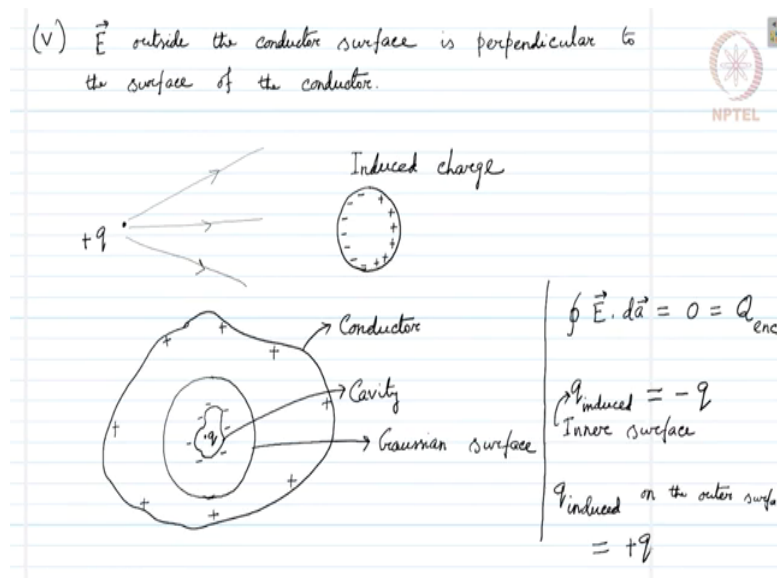 (v) E⃗ outside the conductor surface is perpendicular to
the surface of the conductor.
NPTEL
Induced charge
+q
Conductor
Cavity
Gaussian surface
.q
∮ E⃗ . da⃗ = 0 = Q_enc
q_induced = - q
Inner surface
q_induced on the outer surfa
= +q